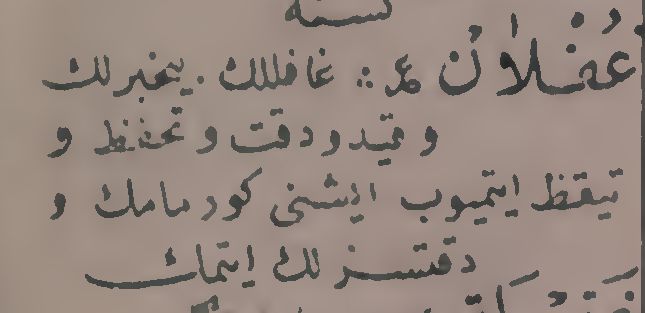 غُفْلَانْ ع :: غافللك . بيخبرلك
و قيد و دقت و تحفظ و
تيقظ ايتميوب ايشنى كورمامك و
دقتسزلك ايتمك